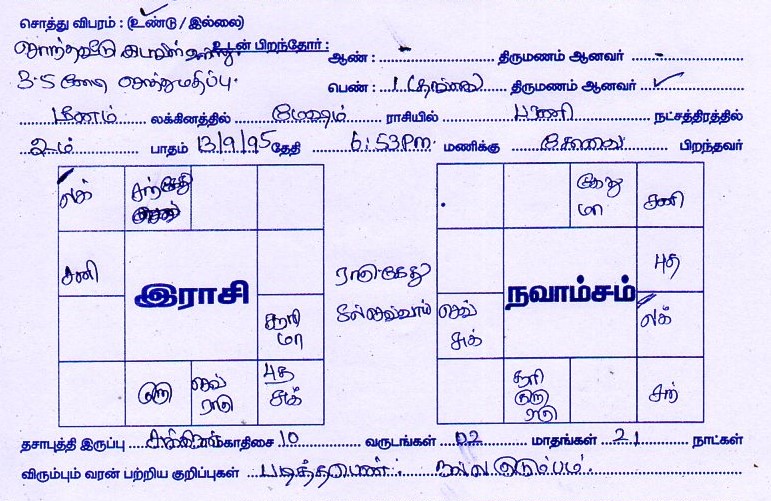 சொத்து விபரம் : (உண்டு / இல்லை)
உடன் பிறந்தோர் : ஆண் : - திருமணம் ஆனவர் -
3.5 கோடி சொத்துமதிப்பு.
பெண் : 1 (தங்கை) திருமணம் ஆனவர் ✓
மீனம் லக்கினத்தில் மேஷம் ராசியில் பரணி நட்சத்திரத்தில்
2ம் பாதம் 13/9/95 தேதி 6:53 Pm. மணிக்கு கோவை பிறந்தவர்
லக்
சந் கேது
சனி
இராசி
சூரி
மா
குரு
செவ்
ராகு
புத
சுக்
ராகு கேது
செவ்வாய்
கேது
மா
சனி
புத
நவாம்சம்
செவ்
சுக்
லக்
சூரி
குரு
ராகு
சந்
தசாபுத்தி இருப்பு காதிசை 10 வருடங்கள் 02 மாதங்கள் 21 நாட்கள்
விரும்பும் வரன் பற்றிய குறிப்புகள் படித்தபெண். நல்ல குடும்பம்.